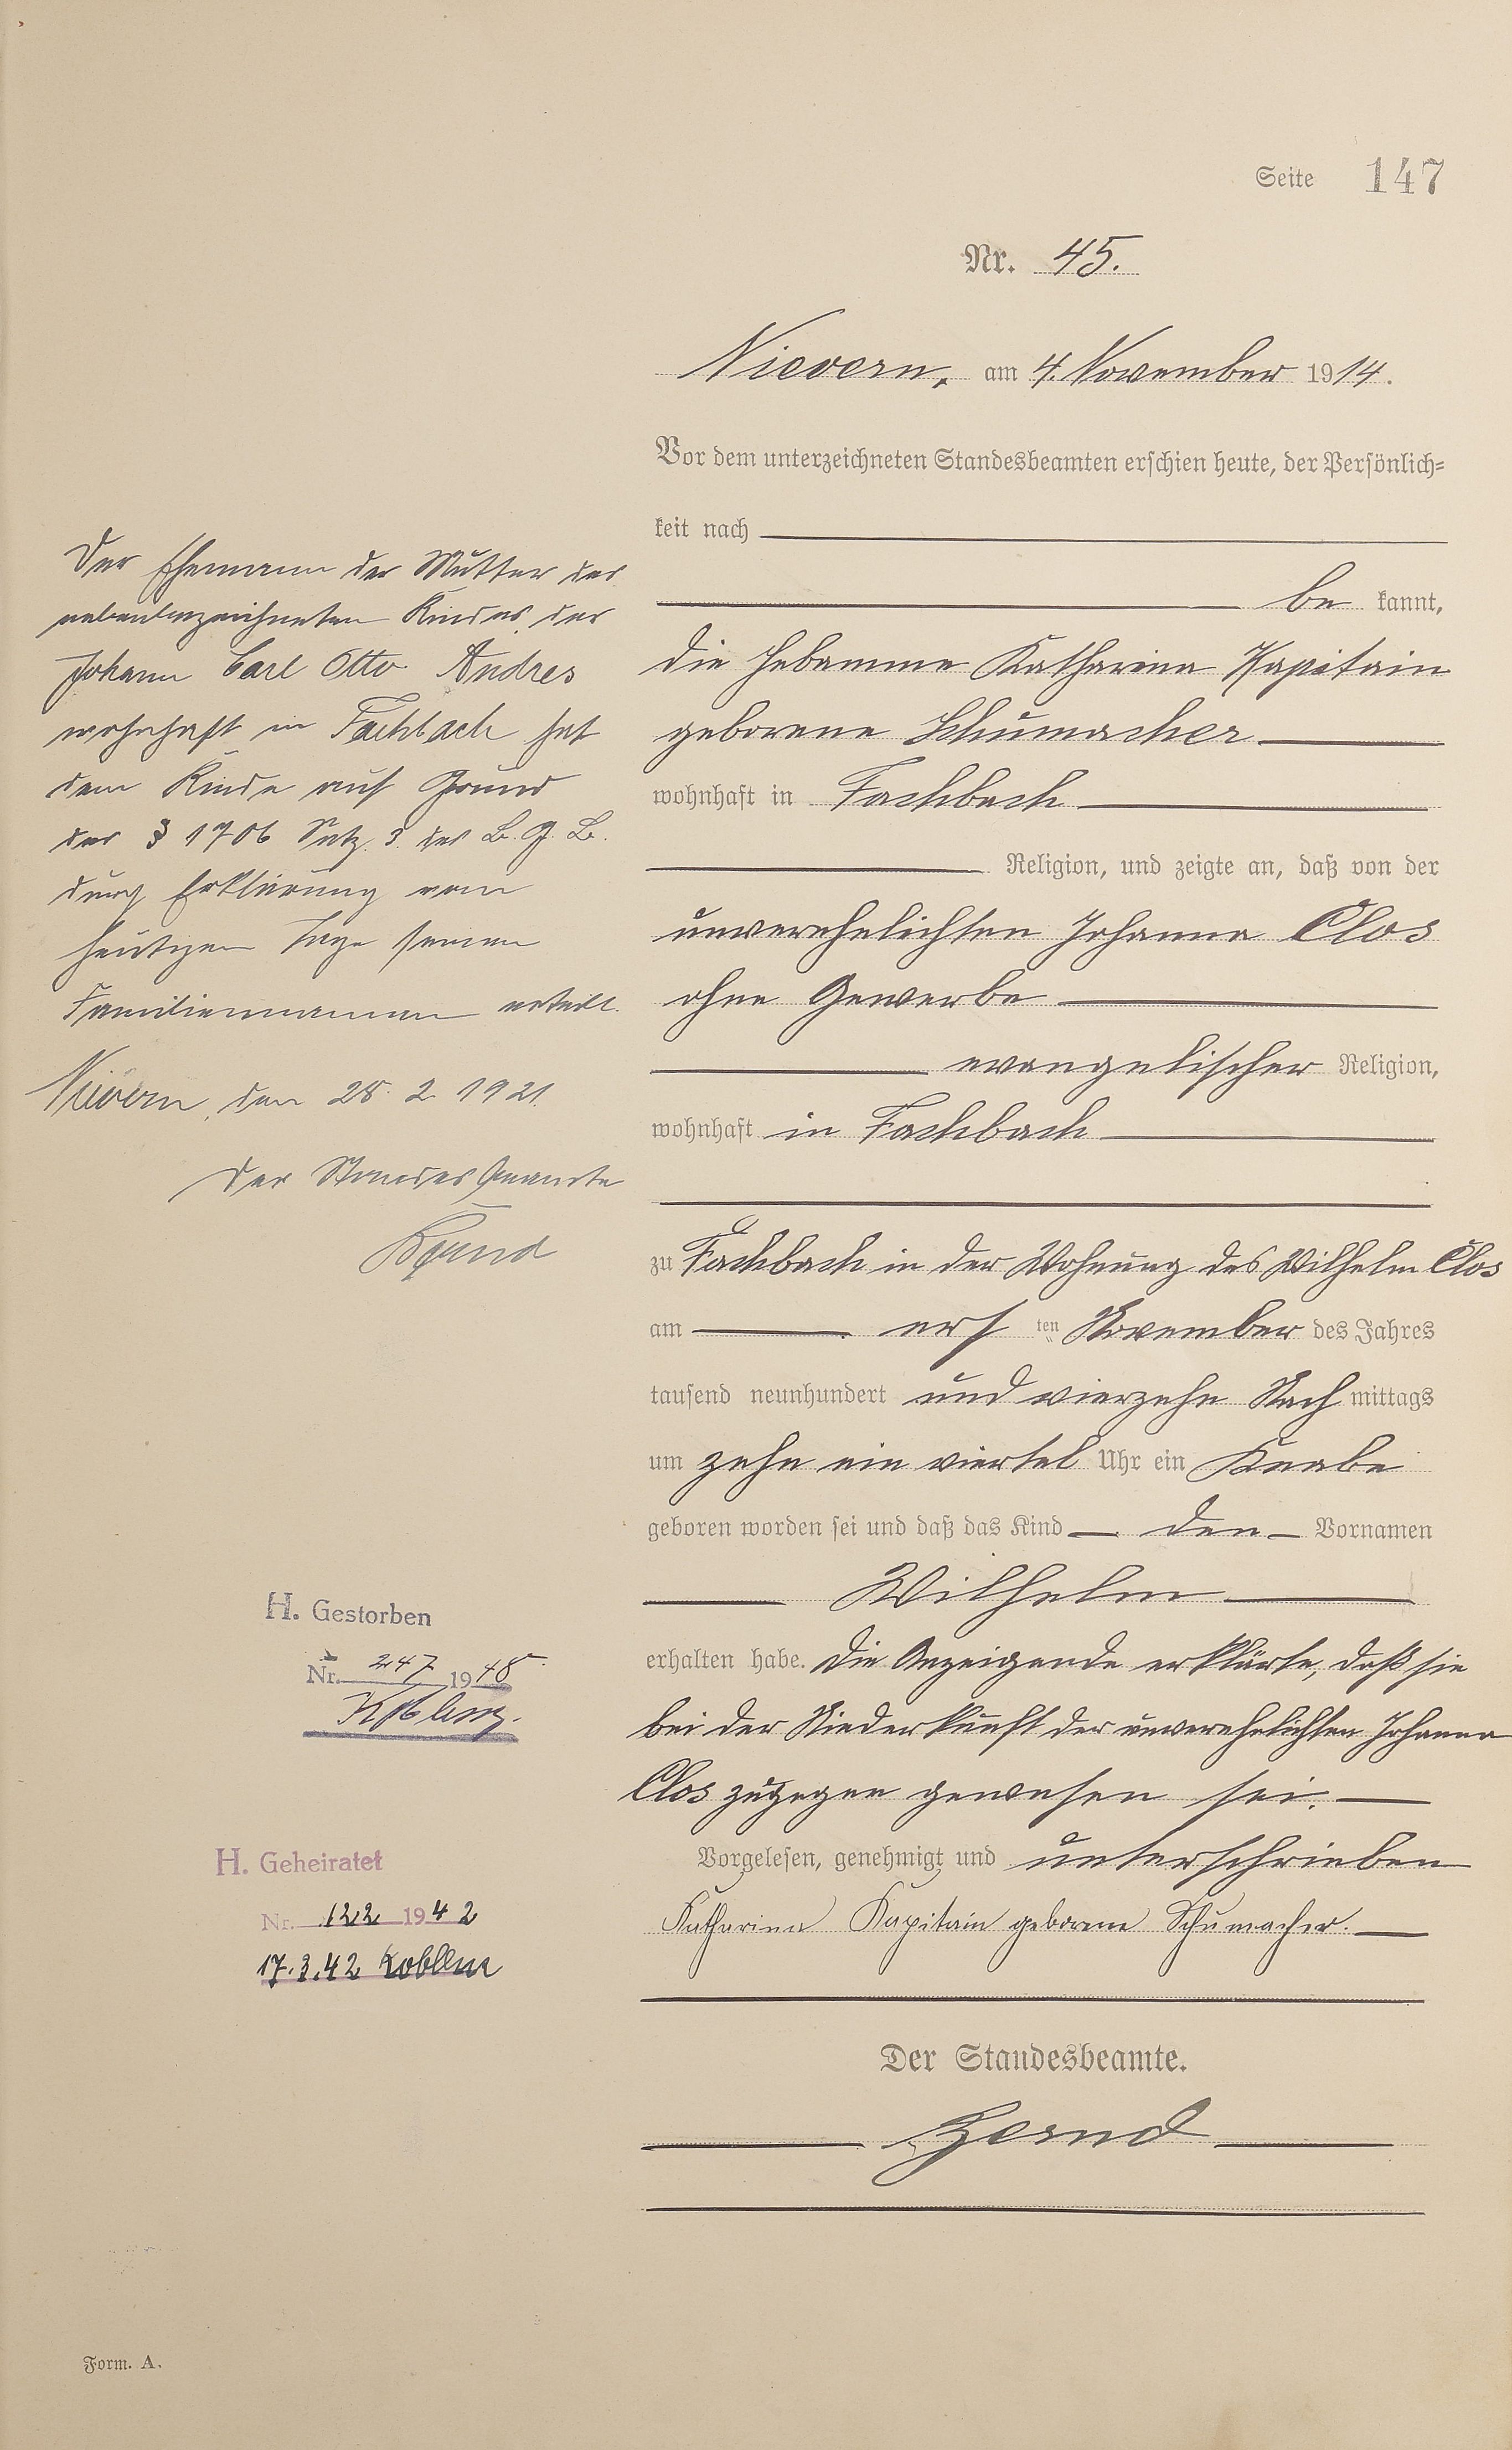 Seite 147
Nr. 45.
Nievern, am 4. November 1914.
Vor dem unterzeichneten Standesbeamten erschien heute, der Persönlich=
keit nach
be kannt,
die Hebamme Katharina Kapitain
geborene Schumacher
wohnhaft in Fachbach
Religion, und zeigte an, daß von der
unverehelichten Johanna Clos
ohne Gewerbe
evangelischer Religion,
wohnhaft in Fachbach
zu Fachbach in der Wohnung des Wilhelm Clos
am ersten November des Jahres
tausend neunhundert und vierzehn Nachmittags
um zehn ein viertel Uhr ein Knabe
geboren worden sei und daß das Kind den Vornamen
Wilhelm
erhalten habe. Die Anzeigende erklärte, daß sie
bei der Niederkunft der unverehelichten Johanna
Clos zugegen gewesen sei.
Vorgelesen, genehmigt und unterschrieben
Katharina Kapitain geborene Schumacher.
Der Standesbeamte.
Der Ehemann der Mutter des
nebenbezeichneten Kindes, der
Johann Carl Otto Andres
wohnhaft in Fachbach hat
dem Kinde auf Grund
des § 1706 Satz. 3. des B. G. B.
durch Erklärung vom
heutigen Tage seinen
Familiennamen erteilt.
Nievern, den 28. 2. 1921.
Der Standesbeamte
H. Gestorben
Nr. 247 1948
Koblenz.
H. Geheiratet
Nr. 122 1942
17.3.42 Koblenz
Form. A.